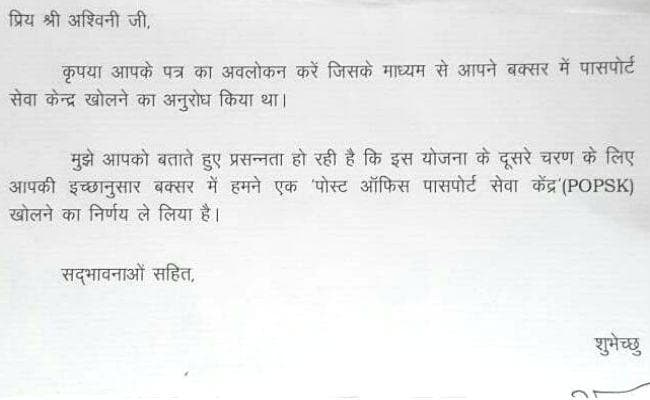 प्रिय श्री अश्विनी जी,
कृपया आपके पत्र का अवलोकन करें जिसके माध्यम से आपने बक्सर में पासपोर्ट
सेवा केन्द्र खोलने का अनुरोध किया था।
मुझे आपको बताते हुए प्रसन्नता हो रही है कि इस योजना के दूसरे चरण के लिए
आपकी इच्छानुसार बक्सर में हमने एक 'पोस्ट ऑफिस पासपोर्ट सेवा केंद्र'(POPSK)
खोलने का निर्णय ले लिया है।
सद्भावनाओं सहित,
शुभेच्छु